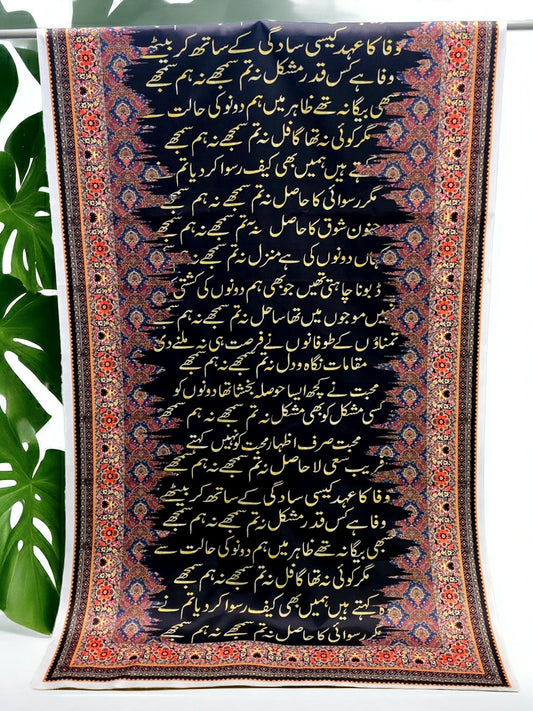 وفا کا عہد کیسی سادگی کے ساتھ کر بیٹھے
وفا ہے کس قدر مشکل نہ تم سمجھے نہ ہم سمجھے
بھی بیگانہ تھے ظاہر میں ہم دونو کی حالت سے
مگر کوئی نہ تھا غافل نہ تم سمجھے نہ ہم سمجھے
کہتے ہیں ہمیں بھی کیف رسوا کر دیا تم نے
مگر رسوائی کا حاصل نہ تم سمجھے نہ ہم سمجھے
جنون شوق کا حاصل نہ تم سمجھے نہ ہم سمجھے
کہاں دونوں کی ہے منزل نہ تم سمجھے نہ ہم
ڈبونا چاہتی تھیں جو بھی ہم دونوں کی کشتی
ہیں موجوں میں تھا ساحل نہ تم سمجھے نہ ہم سمجھے
تمناؤں کے طوفانوں نے فرصت ہی نہ ملنے دی
مقامات نگاہ و دل نہ تم سمجھے نہ ہم سمجھے
محبت نے کچھ ایسا حوصلہ بخشا تھا دونوں کو
کسی مشکل کو بھی مشکل نہ تم سمجھے نہ ہم سمجھے
محبت صرف اظہار محبت کو نہیں کہتے
فریب سعی لا حاصل نہ تم سمجھے نہ ہم سمجھے
وفا کا عہد کیسی سادگی کے ساتھ کر بیٹھے
وفا ہے کس قدر مشکل نہ تم سمجھے نہ ہم سمجھے
بھی بیگانہ تھے ظاہر میں ہم دونو کی حالت سے
مگر کوئی نہ تھا غافل نہ تم سمجھے نہ ہم سمجھے
کہتے ہیں ہمیں بھی کیف رسوا کر دیا تم نے
مگر رسوائی کا حاصل نہ تم سمجھے نہ ہم سمجھے